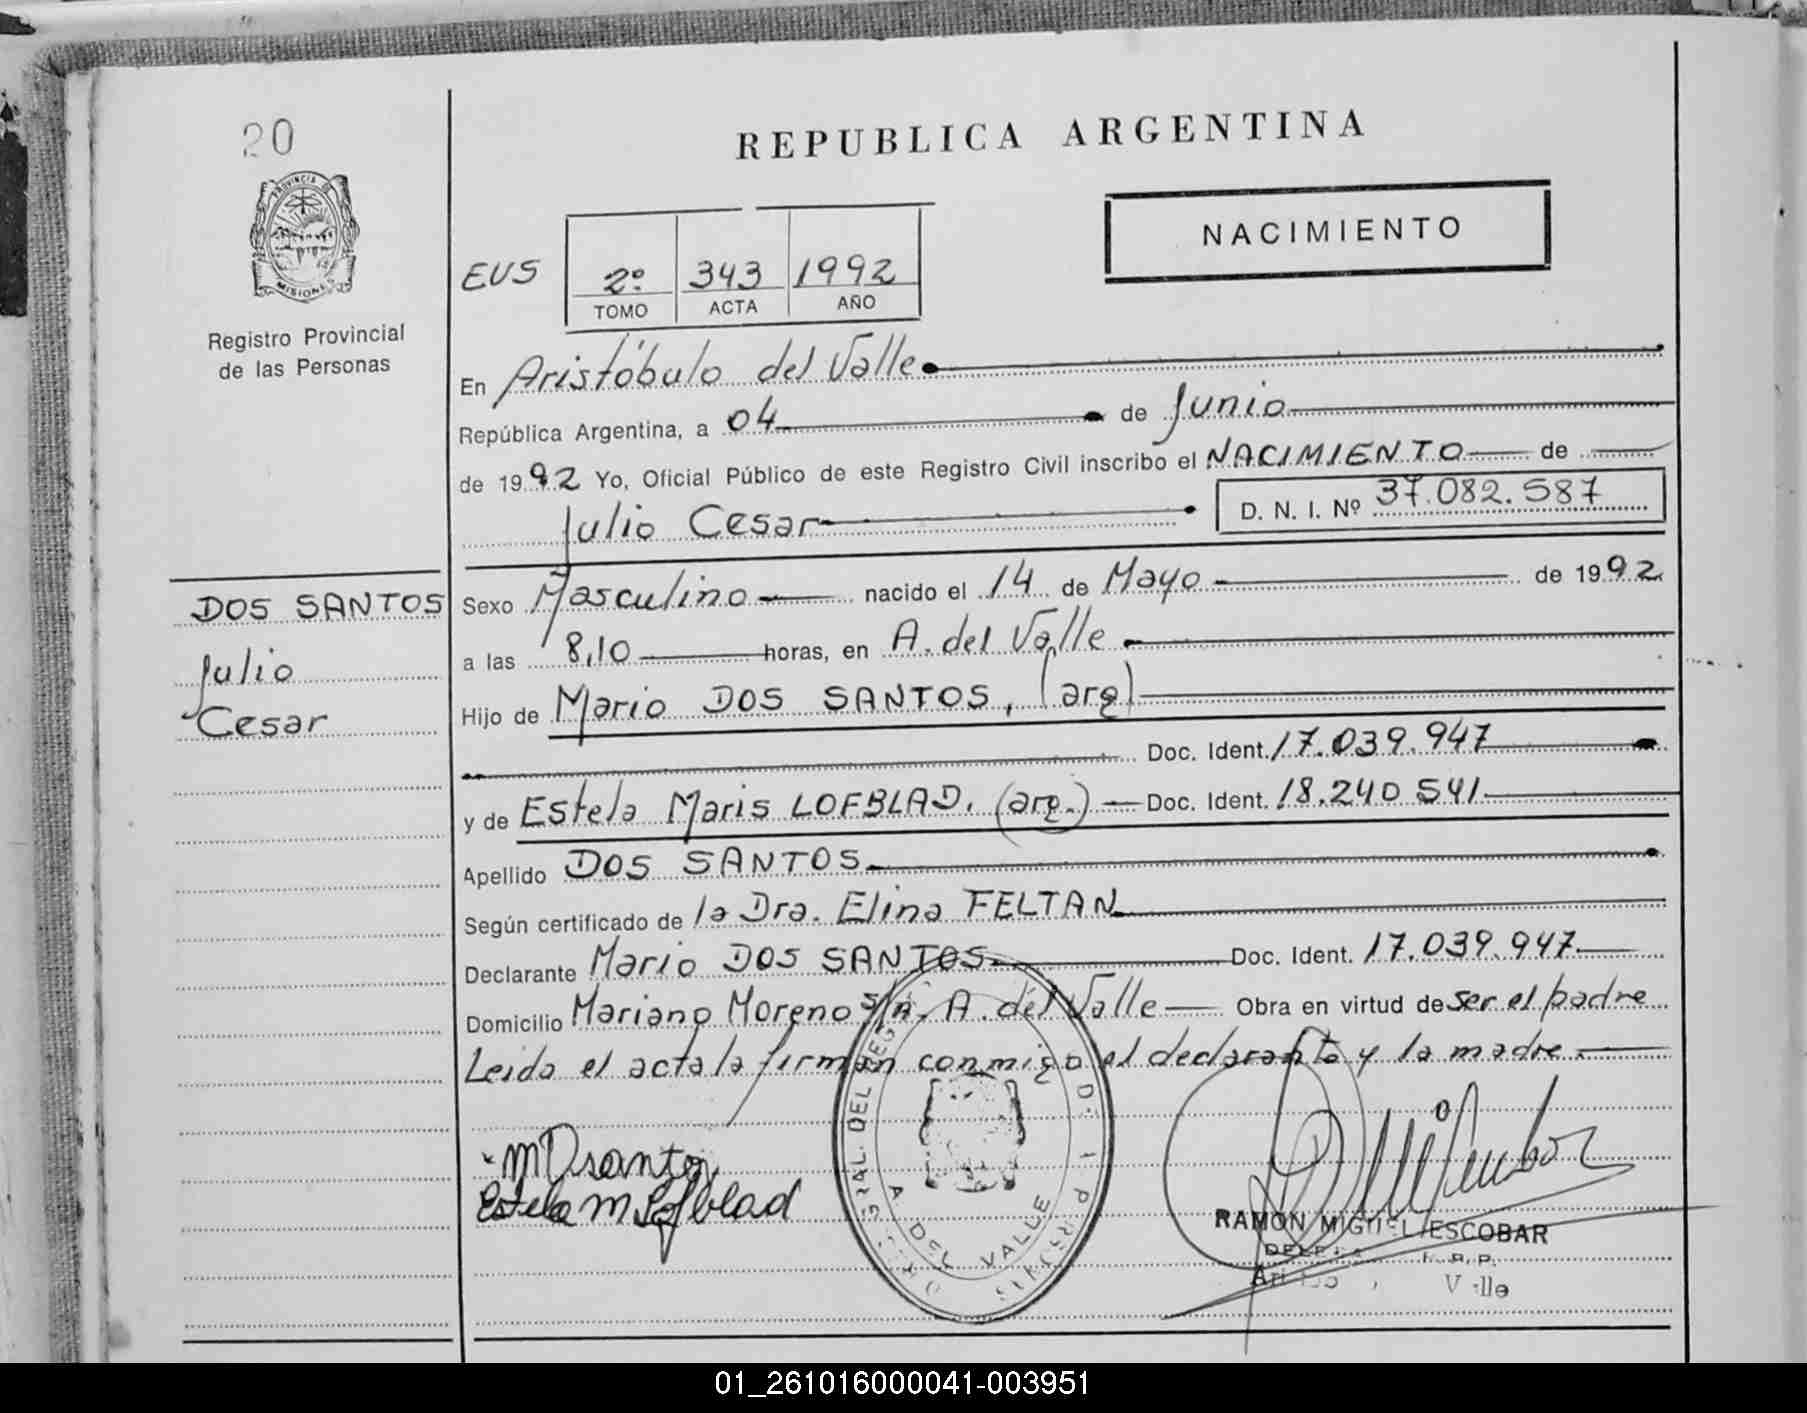 20
PROVINCIA DE
MISIONES
Registro Provincial
de las Personas
REPUBLICA ARGENTINA
NACIMIENTO
EUS 2º 343 1992
TOMO ACTA AÑO
En Aristóbulo del Valle
República Argentina, a 04 de Junio
de 1992 Yo, Oficial Público de este Registro Civil inscribo el NACIMIENTO de
Julio Cesar D. N. I. Nº 37.082.587
DOS SANTOS
Julio
Cesar
Sexo Masculino nacido el 14 de Mayo de 1992
a las 8,10 horas, en A. del Valle
Hijo de Mario DOS SANTOS, (arg)
Doc. Ident. 17.039.947
y de Estela Maris LOFBLAD. (arg.) Doc. Ident. 18.240 541
Apellido DOS SANTOS
Según certificado de la Dra. Elina FELTAN
Declarante Mario DOS SANTOS Doc. Ident. 17.039.947
Domicilio Mariano Moreno s/n. A. del Valle Obra en virtud de ser el padre
Leida el acta la firman conmigo el declarante y la madre.
MDsantos
Estela M Lofblad
A. DEL VALLE
RAMON MIGUEL ESCOBAR
01_261016000041-003951